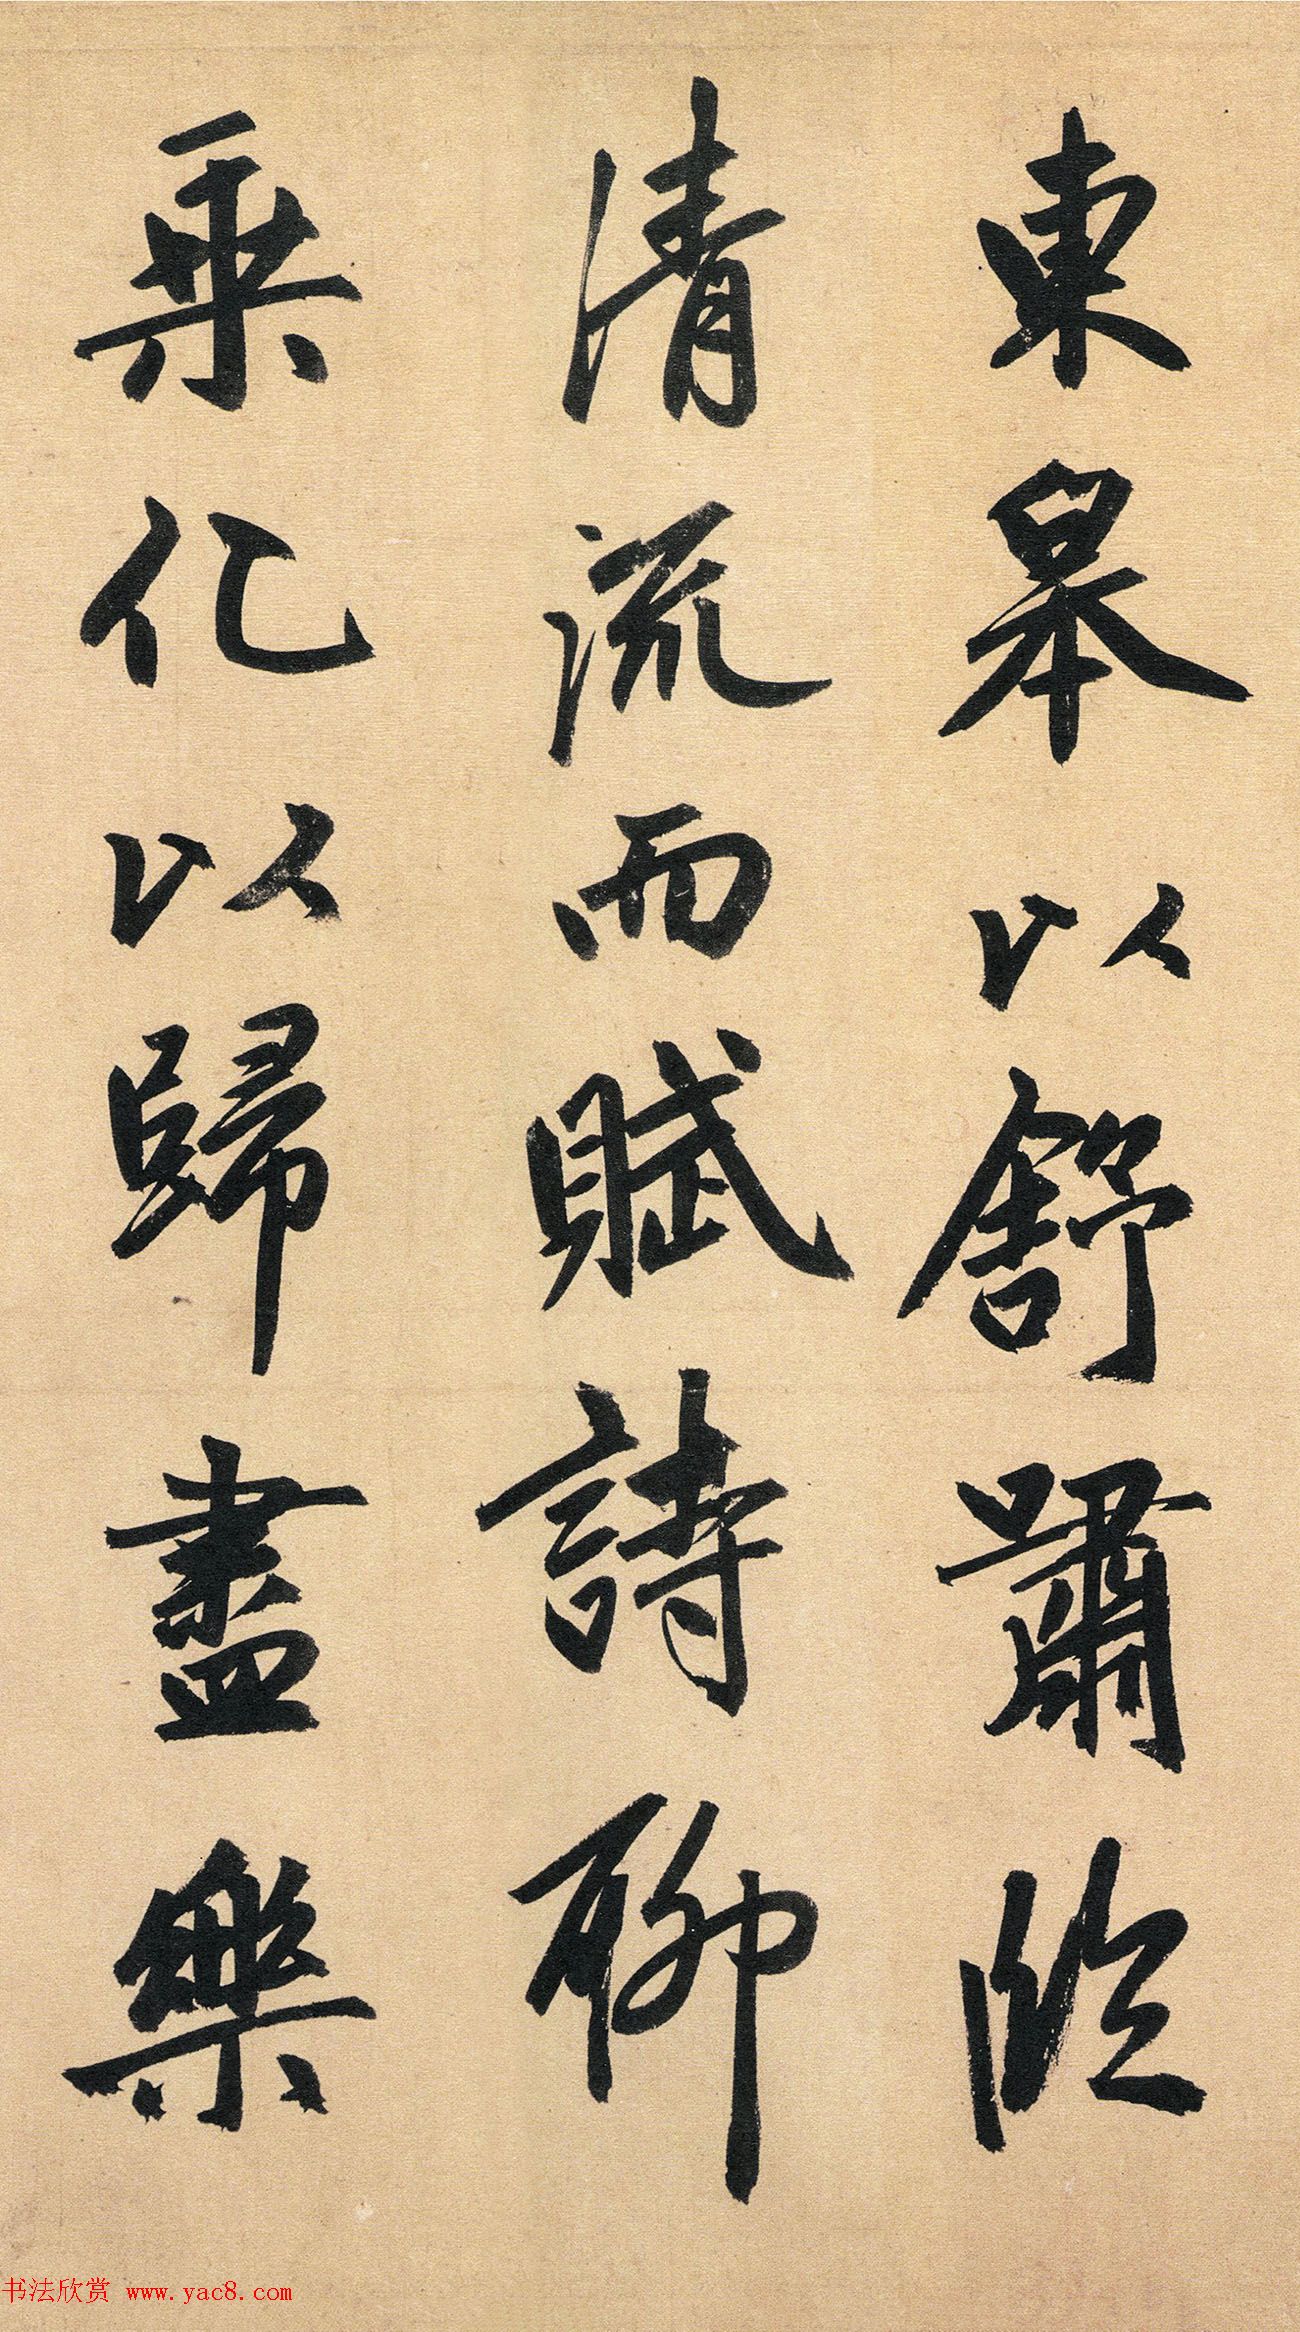 東皋以舒嘯臨
清流而賦詩聊
乘化以歸盡樂
书法欣赏 www.yac8.com